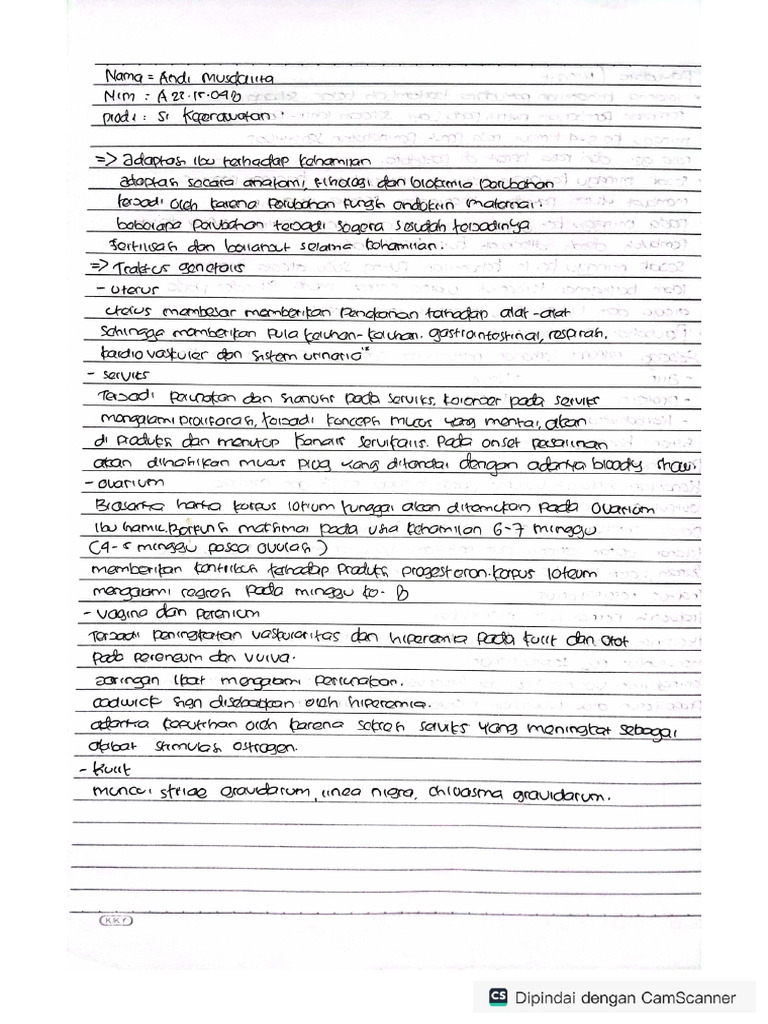 Nama = Andi Musdalifa
Nim : A22.15.048
Prodi : S1 Keperawatan
=> adaptasi ibu terhadap kehamilan
adaptasi secara anatomi, fisiologi dan biokimia perubahan
terjadi oleh karena perubahan fungsi endokrin maternal.
beberapa perubahan terjadi segera sesudah terjadinya
fertilisasi dan berlanjut selama kehamilan.
=> Traktus genetalis
- uterus
uterus membesar memberikan penekanan terhadap alat-alat
sehingga memberikan pula keluhan-keluhan. gastrointestinal, respirasi,
kardiovaskuler dan sistem urinario"
- serviks
Terjadi perunakan dan sianosis pada serviks, kelenjer pada serviks
mengalami proliferasi, terjadi konsepsi mucus yang mental, akan
di produksi dan menutup kanalis servikalis. Pada onset persalinan
akan dihasilkan mucus plug yang ditandai dengan adanya bloody show.
- ovarium
Biasanya hanya korpus lotium tunggal akan ditemukan pada ovarium
ibu hamil. Berfungsi maksimal pada usia kehamilan 6-7 minggu
(4-5 minggu pasca ovulasi)
memberikan kontribusi terhadap produksi progesteron. korpus loteum
mengalami regresi pada minggu ke- 8
- vagina dan perenium
Terjadi peningkatan vaskularitas dan hiperemia pada kulit dan otot
pada pereneum dan vulva.
jaringan ikat mengalami perlunakan.
cadwick sign disebabkan oleh hiperemia.
adanya keputihan oleh karena sekresi serviks yang meningkat sebagai
akibat stimulasi estrogen.
- kulit
muncul striae gravidarum, linea nigra, chloasma gravidarum.
KKY
CS Dipindai dengan CamScanner